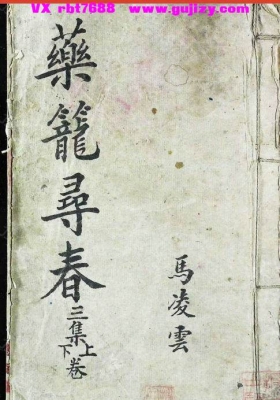 VX rbt7688 www.gujizy.com
藥籠尋春
三集上下卷
馬凌雲